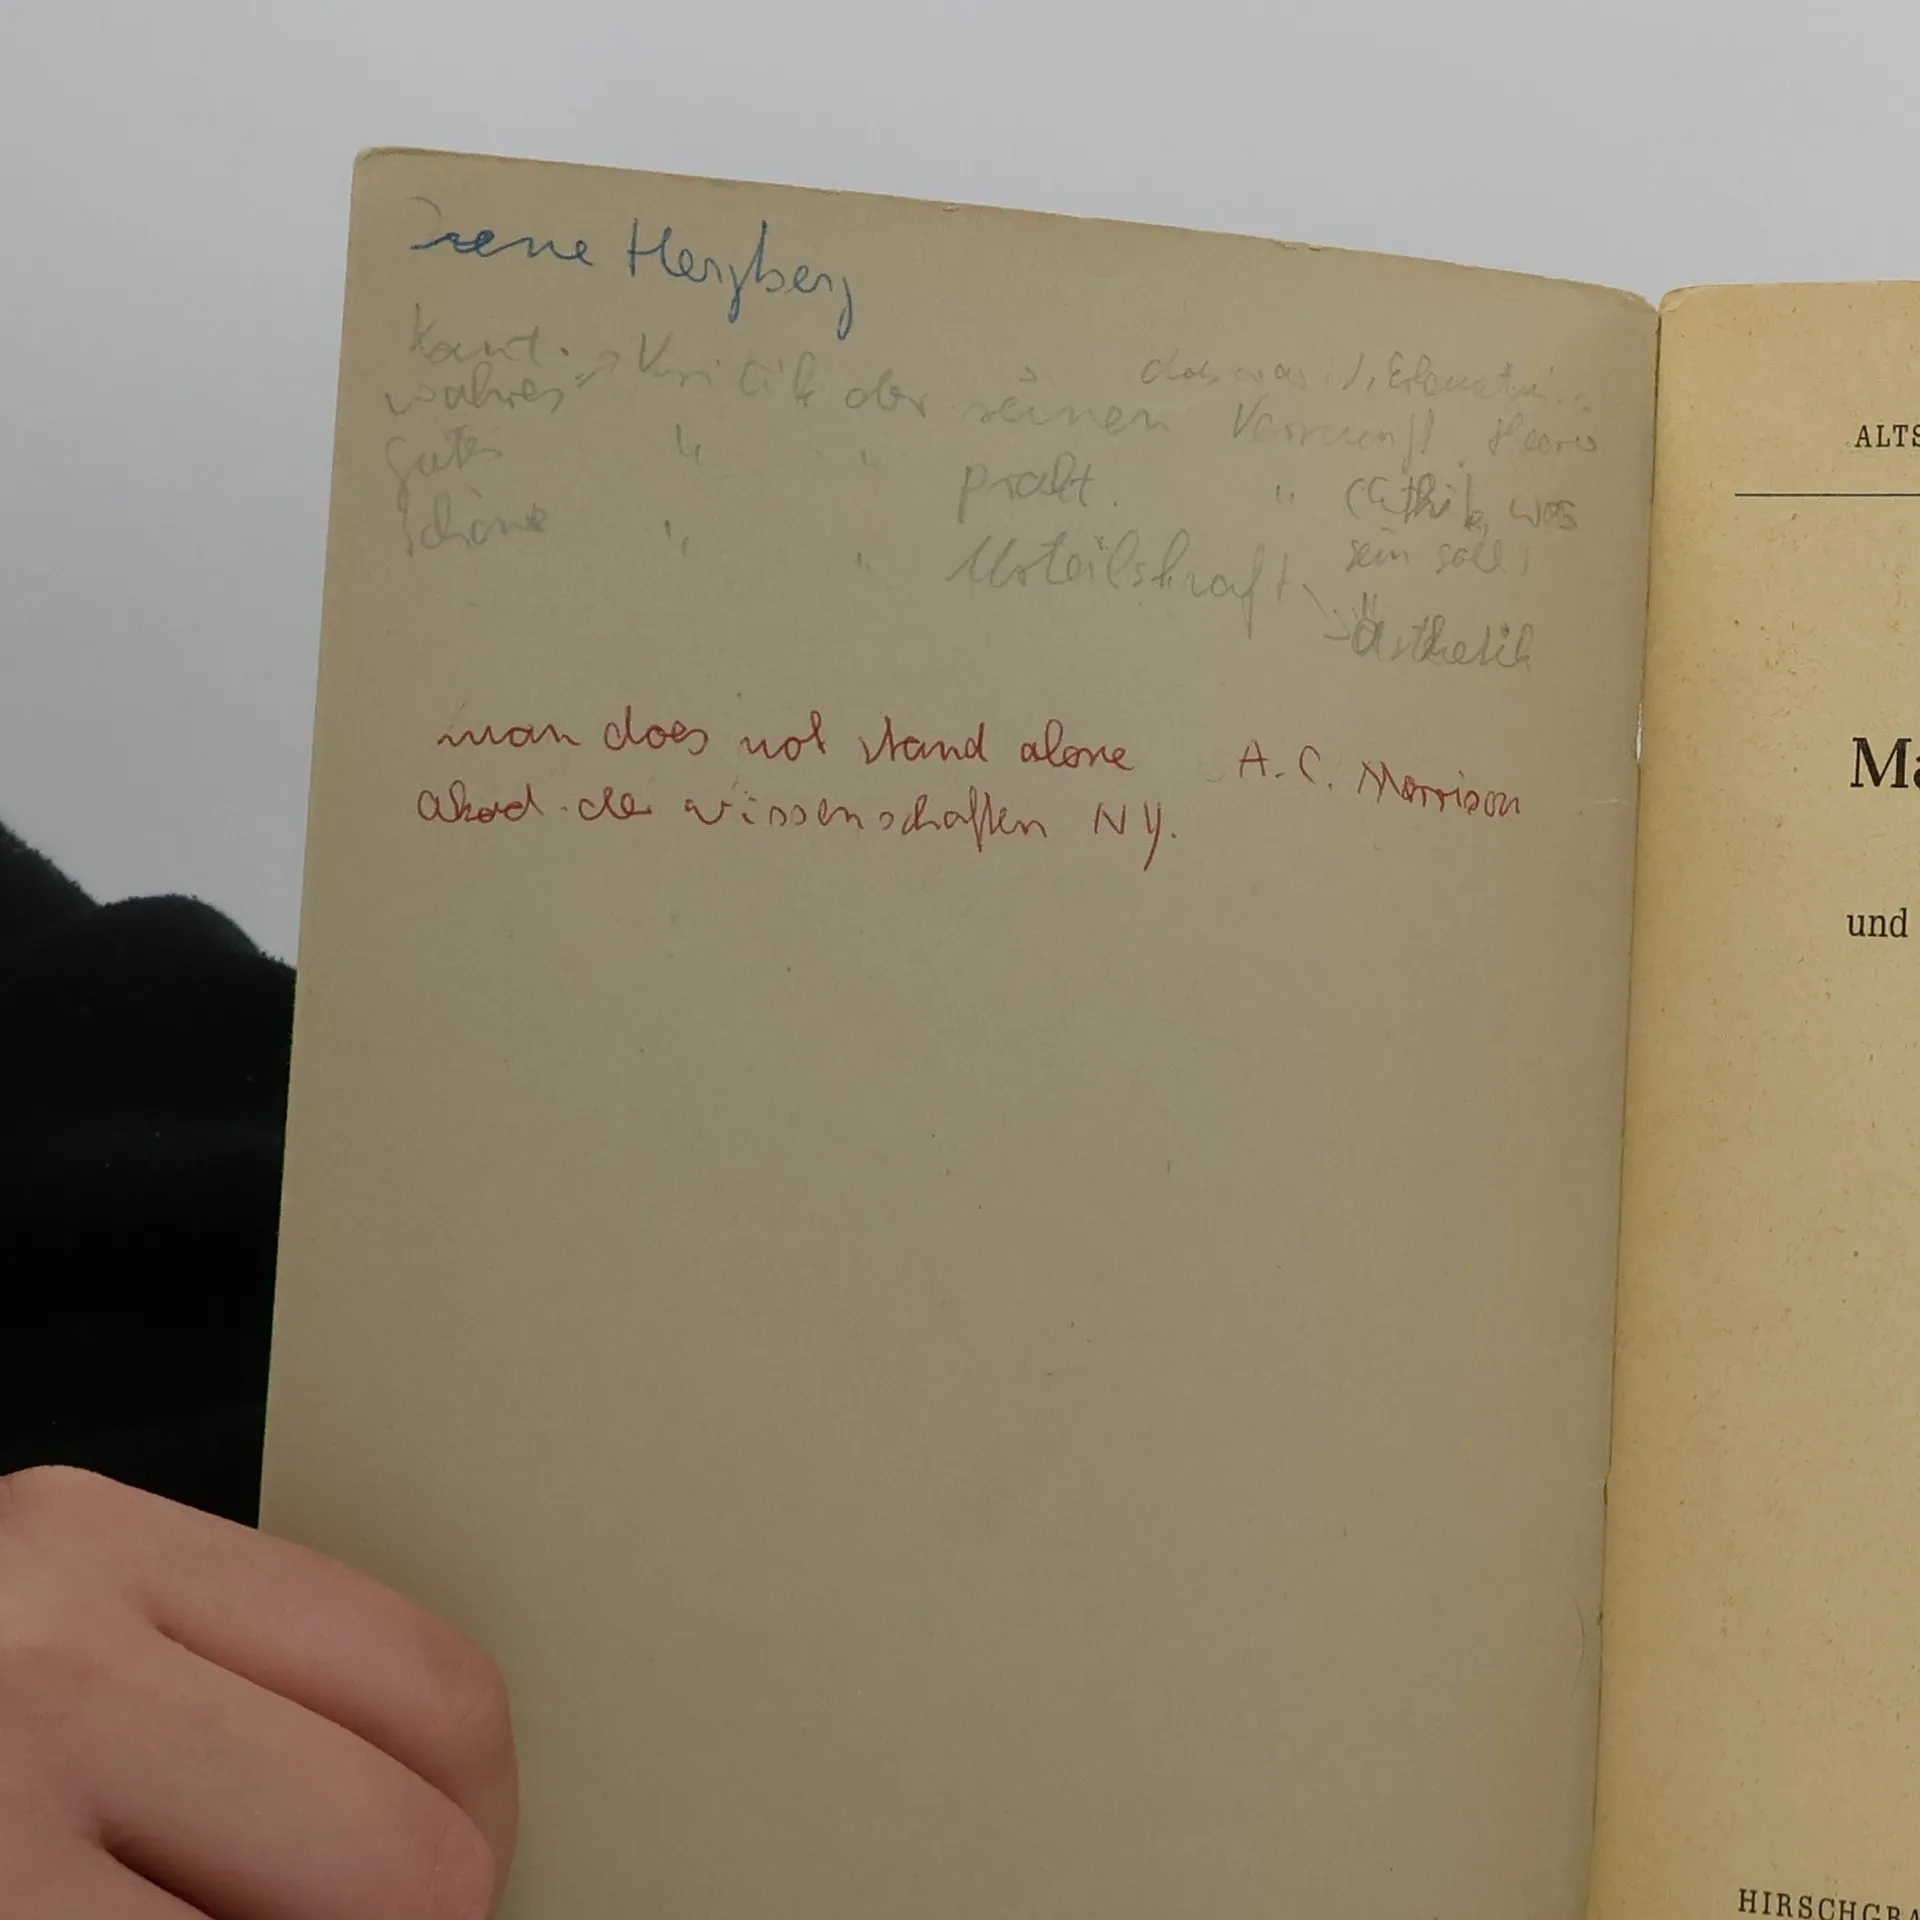 Irene Herzberg
Kant.
das was ist, Erkenntnis
wahres → Kritik der reinen Vernunft
gutes " " prakt. " (Ethik, was
sein soll)
schöne " " Urteilskraft → Ästhetik
man does not stand alone A. C. Morrison
Akad. der wissenschaften NY.
ALTS
Ma
und
HIRSCHGRA